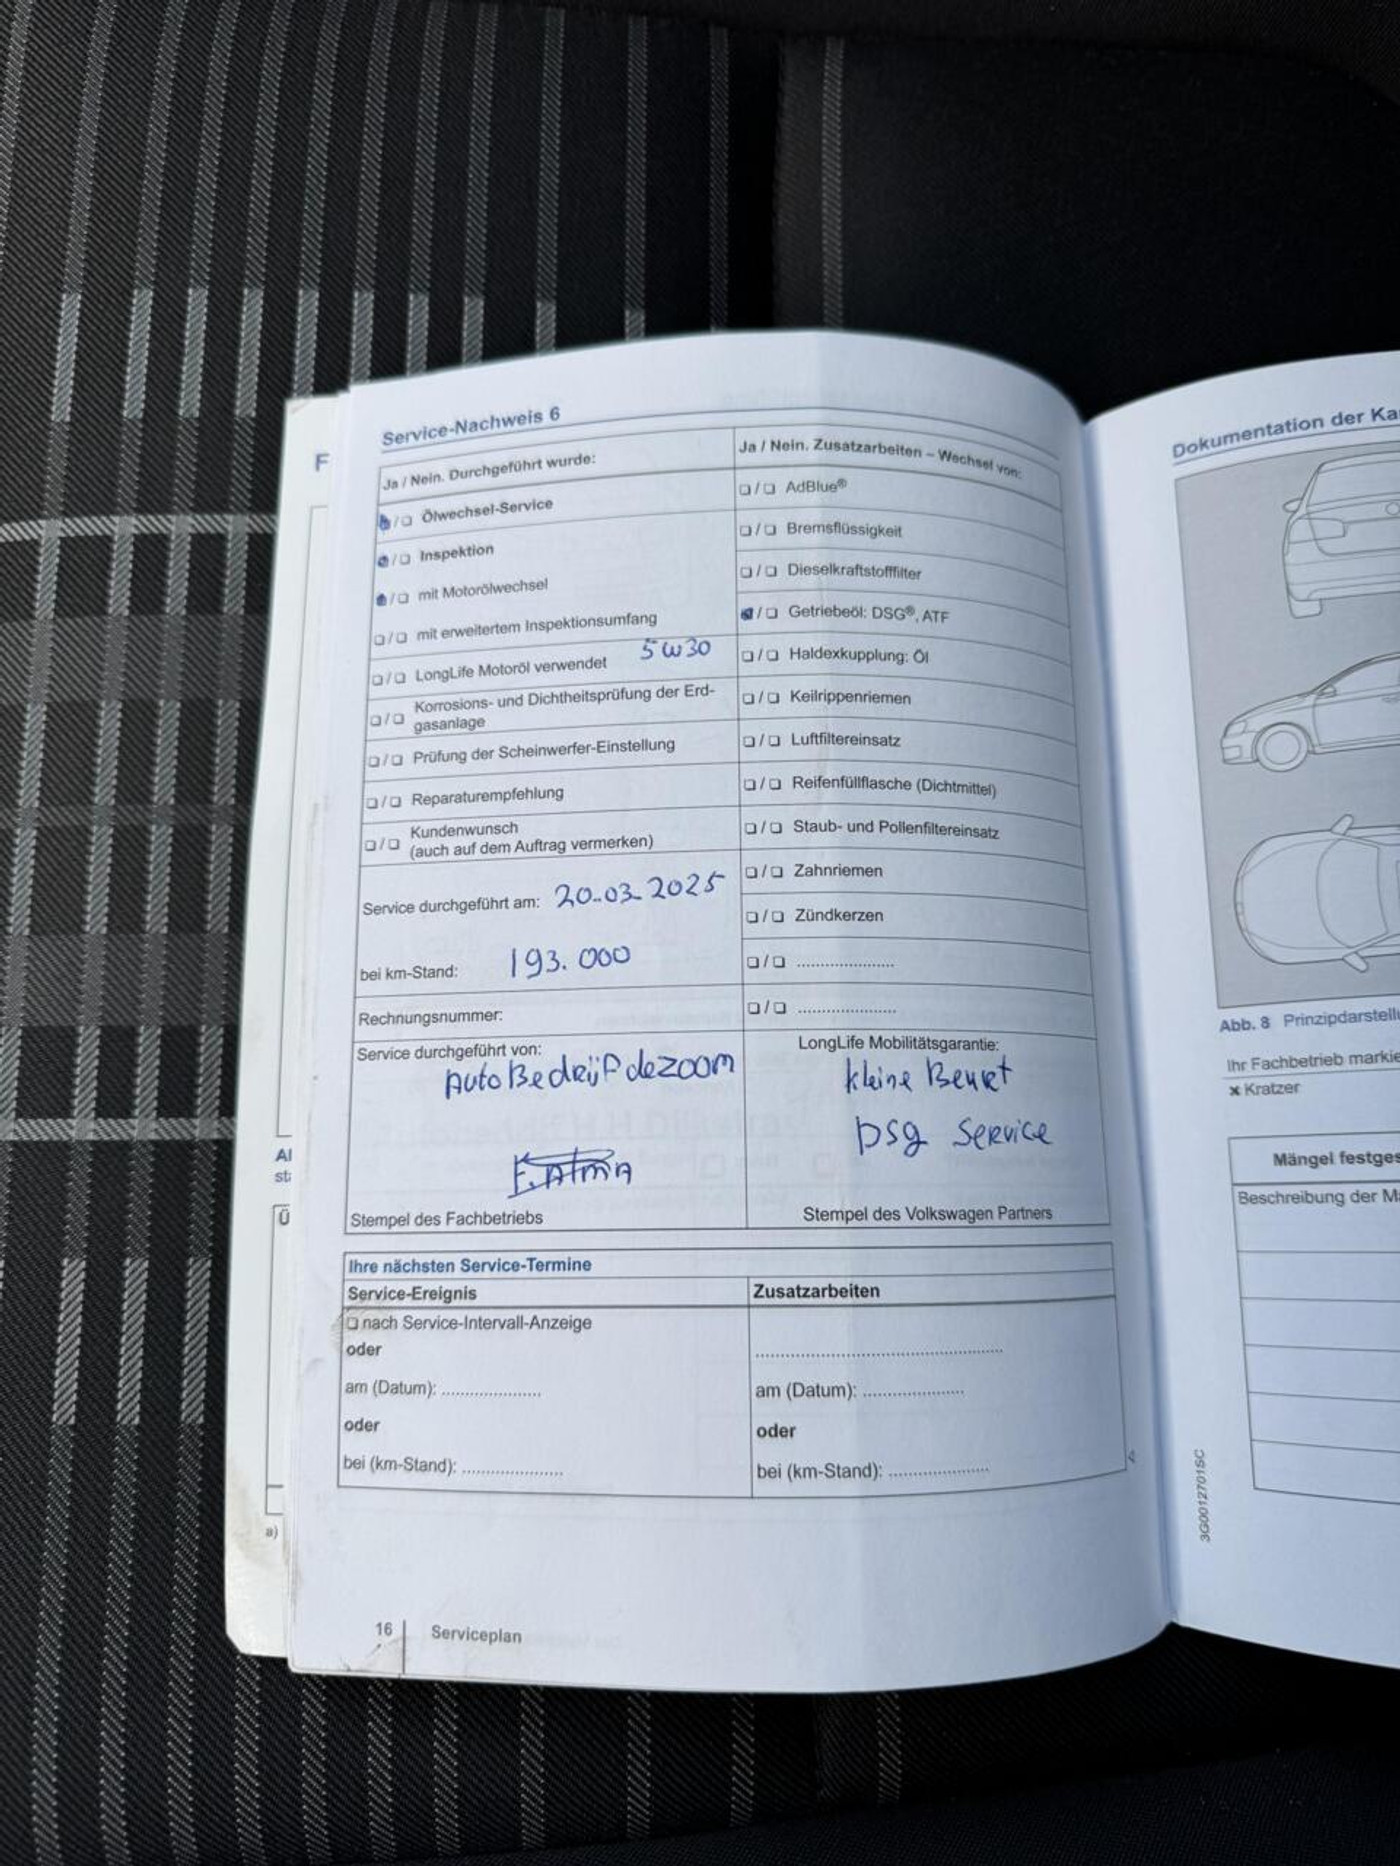 Service-Nachweis 6
Ja / Nein. Durchgeführt wurde:
❏/❏ Ölwechsel-Service
❏/❏ Inspektion
❏/❏ mit Motorölwechsel
❏/❏ mit erweitertem Inspektionsumfang
❏/❏ LongLife Motoröl verwendet 5W30
❏/❏ Korrosions- und Dichtheitsprüfung der Erd-
gasanlage
❏/❏ Prüfung der Scheinwerfer-Einstellung
❏/❏ Reparaturempfehlung
❏/❏ Kundenwunsch
(auch auf dem Auftrag vermerken)
Service durchgeführt am: 20-03-2025
bei km-Stand: 193.000
Rechnungsnummer:
Service durchgeführt von:
AutoBedrijf dezoom
Stempel des Fachbetriebs
Ja / Nein. Zusatzarbeiten – Wechsel von:
❏/❏ AdBlue®
❏/❏ Bremsflüssigkeit
❏/❏ Dieselkraftstofffilter
❏/❏ Getriebeöl: DSG®, ATF
❏/❏ Haldexkupplung: Öl
❏/❏ Keilrippenriemen
❏/❏ Luftfiltereinsatz
❏/❏ Reifenfüllflasche (Dichtmittel)
❏/❏ Staub- und Pollenfiltereinsatz
❏/❏ Zahnriemen
❏/❏ Zündkerzen
❏/❏ ......................
❏/❏ ......................
LongLife Mobilitätsgarantie:
kleine Beurt
DSG Service
Stempel des Volkswagen Partners
Ihre nächsten Service-Termine
Service-Ereignis
❏ nach Service-Intervall-Anzeige
oder
am (Datum): ......................
oder
bei (km-Stand): ......................
Zusatzarbeiten
......................................................
am (Datum): ......................
oder
bei (km-Stand): ......................
16 Serviceplan
F
Al
st
Ü
a)
Dokumentation der Ka
Abb. 8 Prinzipdarstell
Ihr Fachbetrieb markie
× Kratzer
Mängel festges
Beschreibung der M
3G0012701SC